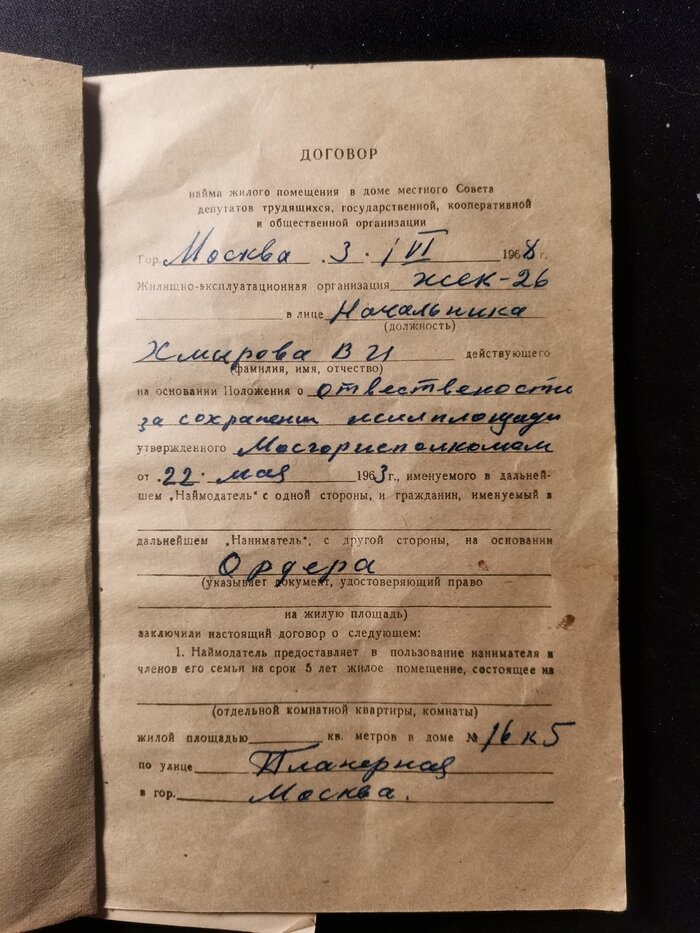 ДОГОВОР
найма жилого помещения в доме местного Совета
депутатов трудящихся, государственной, кооперативной
и общественной организации
Гор. Москва . 3 . VI 1968 г.
Жилищно-эксплуатационная организация ЖЕК-26
в лице Начальника
(должность)
Хмырова В И действующего
(фамилия, имя, отчество)
на основании Положения о отвествености
за сохранении жилплощади
утвержденного Мосгорисполкомам
от 22. мая 1963 г., именуемого в дальней-
шем „Наймодатель" с одной стороны, и гражданин, именуемый в
дальнейшем „Наниматель", с другой стороны, на основании
Ордера
(указывает документ, удостоверяющий право
на жилую площадь)
заключили настоящий договор о следующем:
1. Наймодатель предоставляет в пользование нанимателя и
членов его семьи на срок 5 лет жилое помещение, состоящее из
(отдельной комнатной квартиры, комнаты)
жилой площадью кв. метров в доме № 16 к 5
по улице Планерная
в гор. Москва.